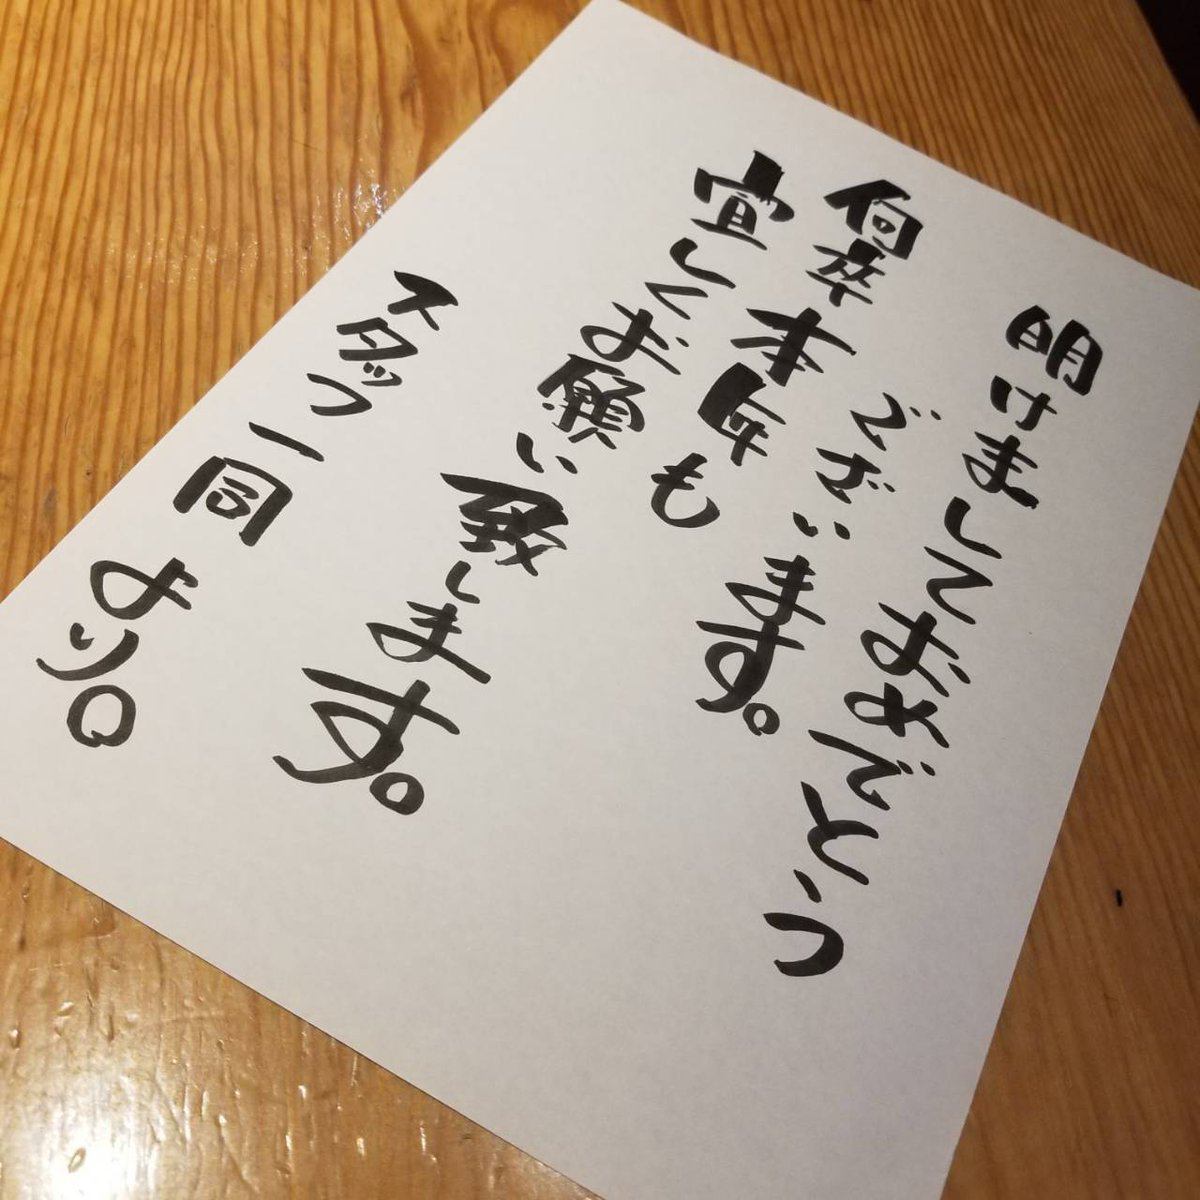 明けましておめでとう
ございます。
何卒本年も
宜しくお願い致します。
スタッフ一同より。